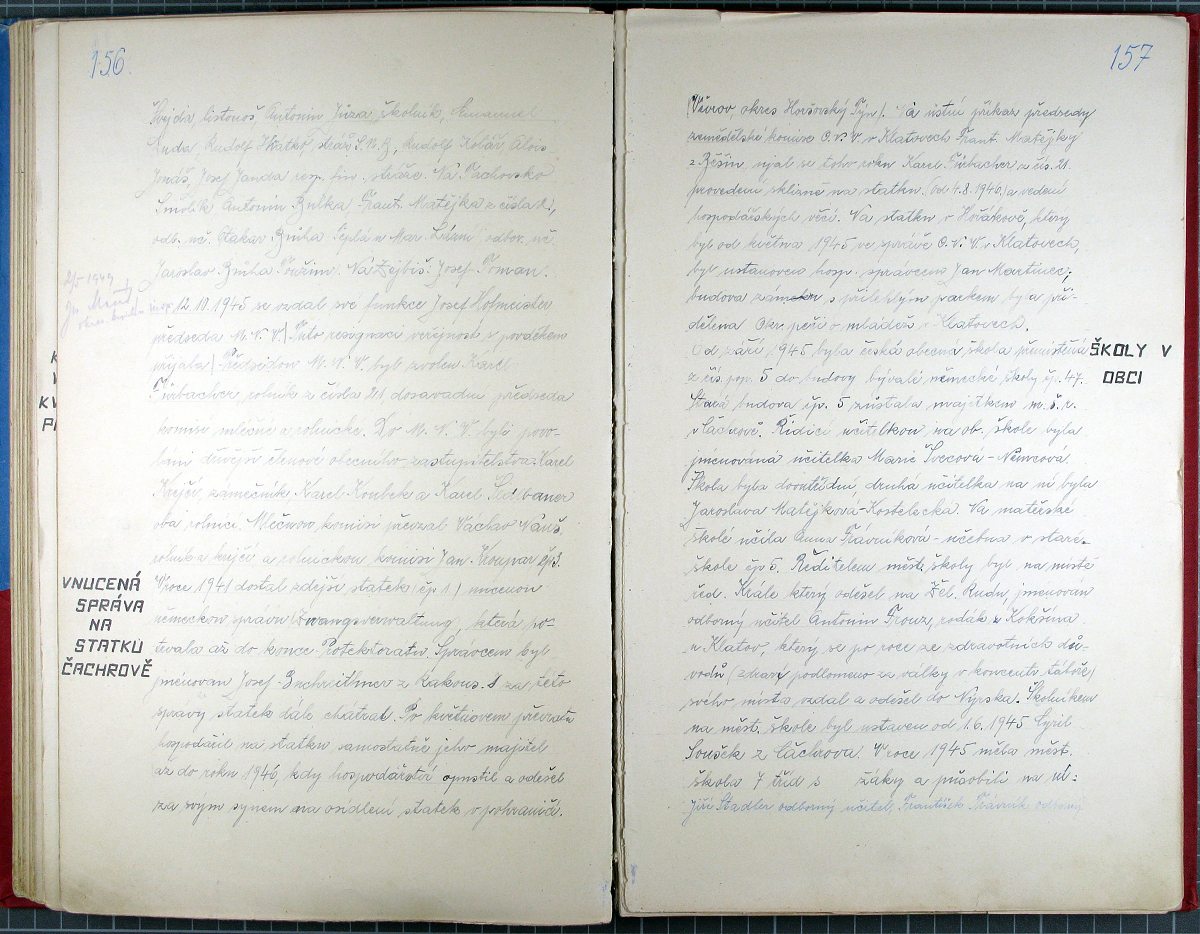 156
listonoš, Antonín školník,
Rudolf stráž S.N.B., Rudolf Kolář Alois
Josef Janda resp. fin. stráže. Na
Antonín Brůha Frant. Matějka z čísla
odb. uč. Otakar Brůha Teplá u Mar. Lázní odbor. uč.
Jaroslav Brůha Toužim. Na Zejbiš Josef Toman.
12.10.1945 se vzdal své funkce Josef Hofmeister
předseda M.N.V. (Tuto resignaci veřejnost s povděkem
přijala) Předsedou M.N.V. byl zvolen Karel
rolník z čísla 21 dosavadní předseda
komise mléčné a rolnické. Do M.N.V. byli povo-
láni dřívější členové obecního zastupitelstva: Karel
Krejčí, zámečník Karel Koubek a Karel
oba rolníci. Mléčnou komisi převzal Václav
rolník a krejčí a rolnickou komisi Jan čp3.
VNUCENÁ
SPRÁVA
NA
STATKU
ČACHROVĚ
V roce 1941 dostal zdejší statek (čp 1.) nucenou
německou správu (Zwangsverwaltung, která po-
trvala až do konce Protektorátu. Správcem byl
jmenován Josef z Rakous. A za této
správy statek dále chátral. Po květnovém převratu
hospodařil na statku samostatně jeho majitel
až do roku 1946, kdy hospodářství opustil a odešel
za svým synem na osídlený statek v pohraničí.
157
(Věvrov, okres Horšovský Týn). Na ústní příkaz předsedy
zemědělské komise O.N.V. v Klatovech Frant. Matějky
z Běšin, ujal se toho roku Karel z čís. 21.
provedení sklizně na statku (od 4.8.1946) a vedení
hospodářských věcí. Na statku v Hořákově, který
byl od května 1945 ve správě O.N.V. v Klatovech,
byl ustanoven hosp. správcem Jan Martinec;
budova zámku s přilehlým parkem byla při-
dělena Okr. péči o mládež v Klatovech.
ŠKOLY V
OBCI
Od září 1945 byla česká obecná škola přemístěna
z čís. pop. 5 do budovy bývalé německé školy čp. 47.
Stará budova čp. 5 zůstala majetkem m. š. r.
v Čáchrově. Řídící učitelkou na ob. škole byla
jmenována učitelka Marie Švecová-Němcová
Škola byla dvoutřídní druhá učitelka na ní byla
Jaroslava Matějková-Kostelecká. Na mateřské
škole učila Anna Trávníková-učebna v staré
škole čp 5. Ředitelem měšt. školy byl na místě
řed. Krále který odešel na Žel. Rudu, jmenován
odborný učitel Antonín Trouz, rodák z Kokšína
u Klatov, který se po roce ze zdravotních dů-
vodů (zdraví podlomeno za války v koncentr. táboře)
svého místa vzdal a odešel do Nýrska. Školníkem
na měšt. škole byl ustaven od 1.6.1945 Cyril
Soušek z Čáchrova. V roce 1945 měla měšt.
škola 7 tříd s žáky a působili na ní:
Jiří Stadler odborný učitel, František Trávník odborný